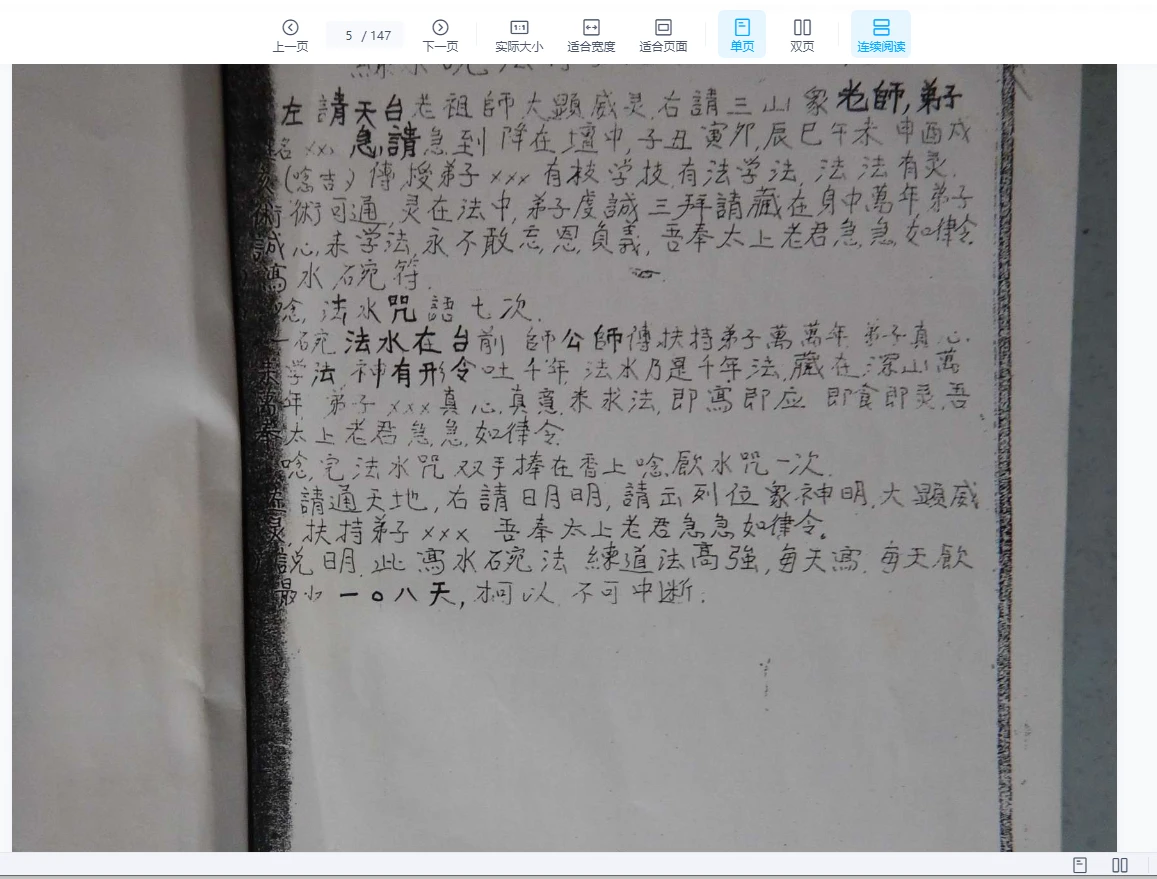 上一页 5 / 147 下一页 1:1 实际大小 适合宽度 适合页面 单页 双页 连续阅读
左請天台老祖師大顯威灵,右請三山眾老師,弟子
xx 急請急到降在壇中,子丑寅卯,辰巳午未申酉戍
(唸吉)傳授弟子xxx有技学技,有法学法,法法有灵,
術術可通,灵在法中,弟子虔誠三拜請藏在身中萬年,弟子
誠心来学法,永不敢忘恩負義,吾奉太上老君急急如律令
寫水碗符.
唸,法水咒語七次.
一碗法水在台前 師公師傅扶持弟子萬萬年 弟子真心
来学法 神有形令吐千年,法水乃是千年法,藏在深山萬
萬年,弟子xxx真心,真意来求法,即寫即应 即食即灵,吾
奉太上老君急急如律令
唸,完法水咒双手捧在香上唸飲水咒一次.
請通天地,右請日月明,請五列位眾神明,大顯威
灵,扶持弟子xxx 吾奉太上老君急急如律令。
說明,此寫水碗法 練道法高強,每天寫,每天飲
最少一0八天,才可以,不可中断.